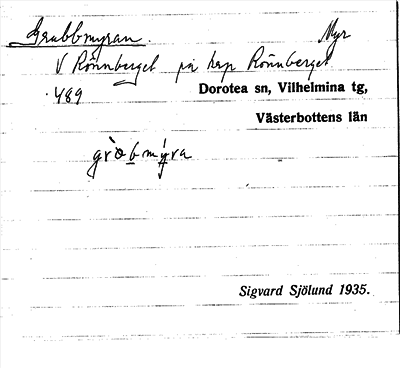 Grubbmyran. Myr
V Rönnberget på kap Rönnberget
489 Dorotea sn, Vilhelmina tg,
Västerbottens län
gròbmýra
Sigvard Sjölund 1935.